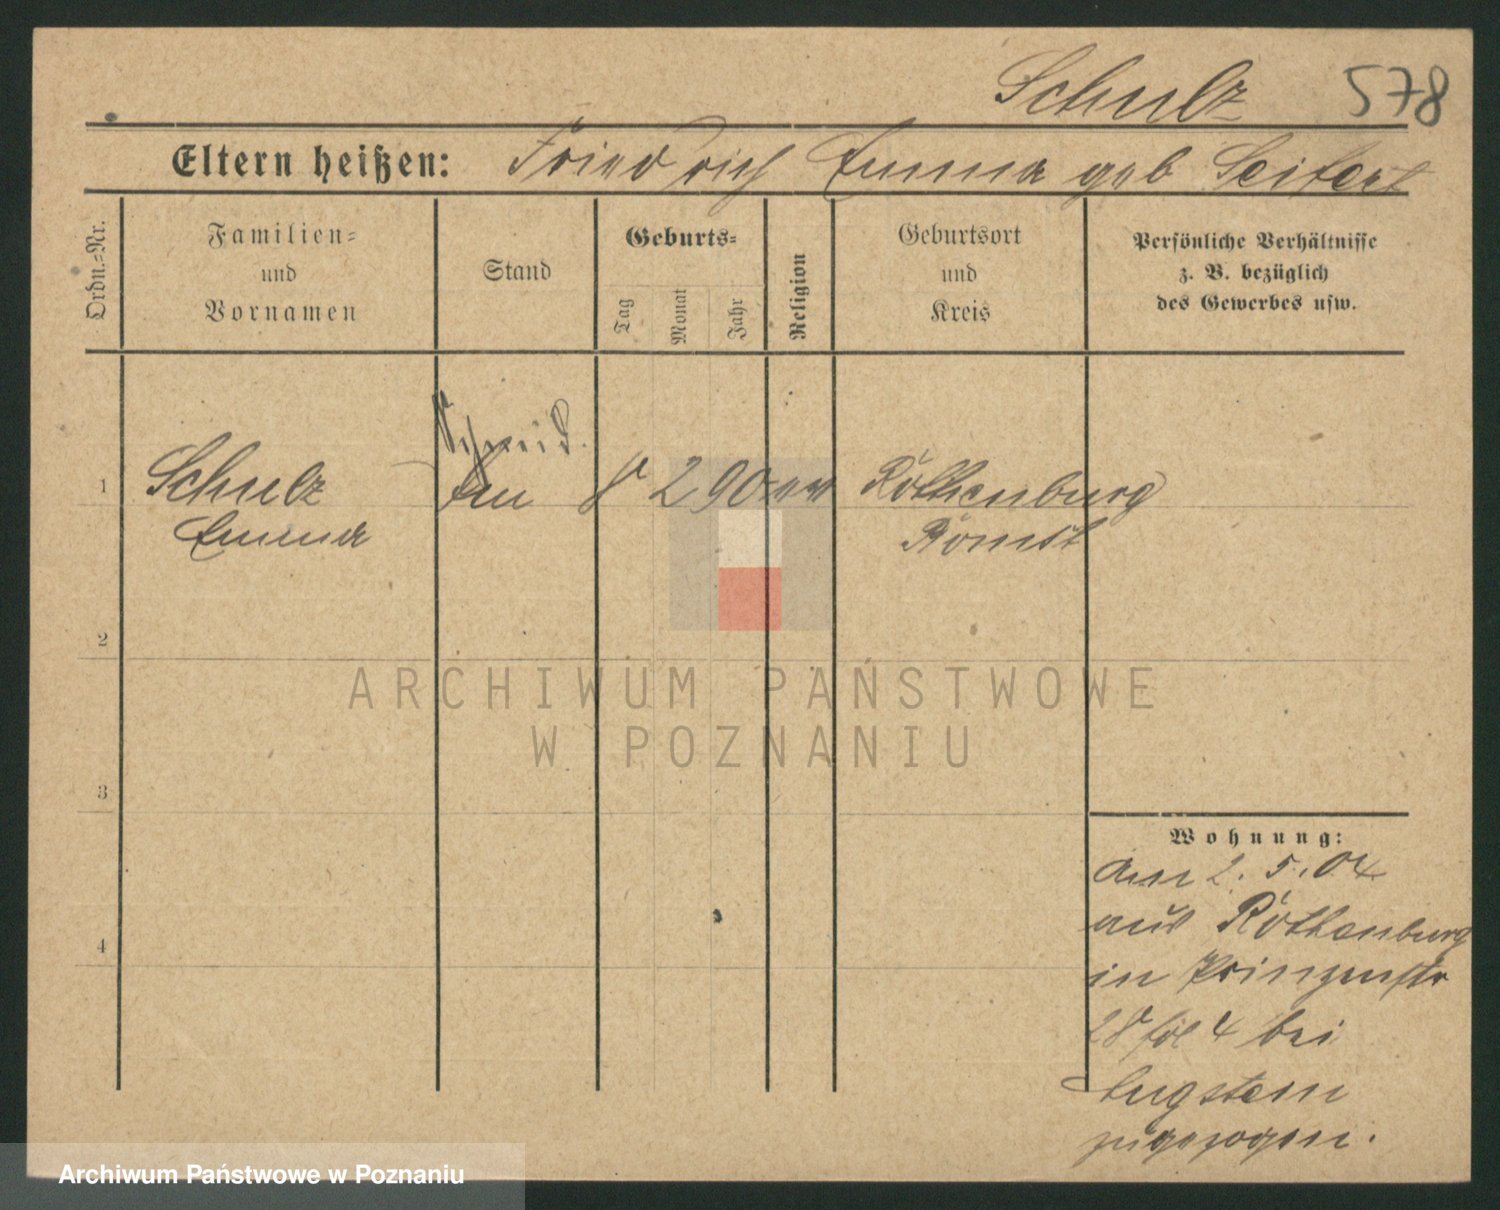 Schulz 578
Eltern heißen: Friedrich Emma geb Seifert
Ordn.=Nr.
Familien=
und
Vornamen
Stand
Geburts=
Tag
Monat
Jahr
Religion
Geburtsort
und
Kreis
Persönliche Verhältnisse
z. B. bezüglich
des Gewerbes usw.
Schneid.
1 Schulz 8 2 90 ev Rothenburg
Emma Bomst
2
3
4
Wohnung:
am 2. 5. 04
aus Rothenburg
in Prinzenstr
28 4 bei
zugezogen.
ARCHIWUM PAŃSTWOWE
W POZNANIU
Archiwum Państwowe w Poznaniu